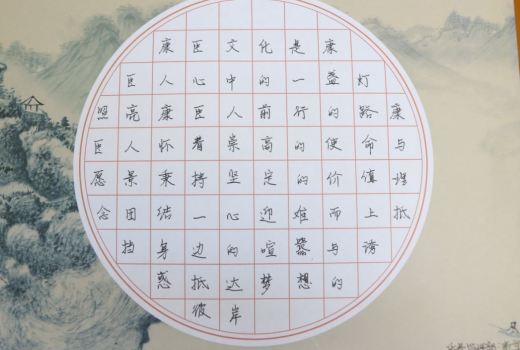 康臣文化是康
臣人心中的一盏灯
照亮康臣人前行的路康
臣人怀着崇高的使命与
愿景秉持坚定的价值理
念团结一心迎难而上抵
挡身边的喧嚣与诱
惑抵达梦想的
彼岸